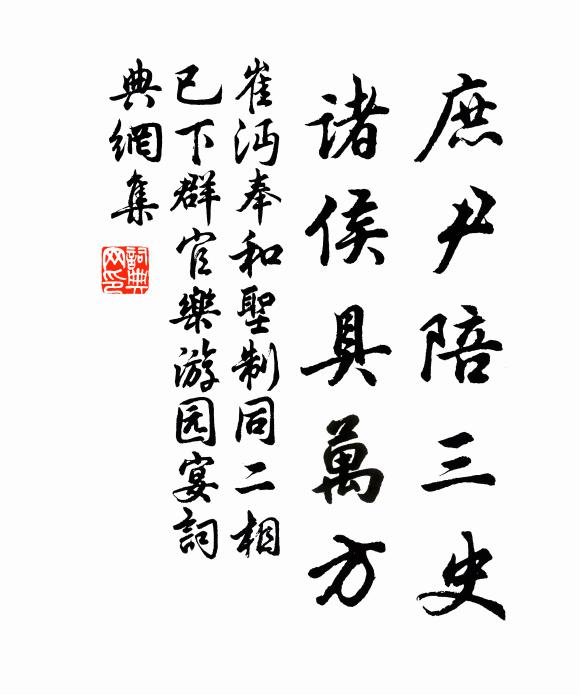 庶尹陪三史
諸侯具萬方
崔沔奉和聖制同二相
已下群官樂游园宴詞
典網集
詞典网印